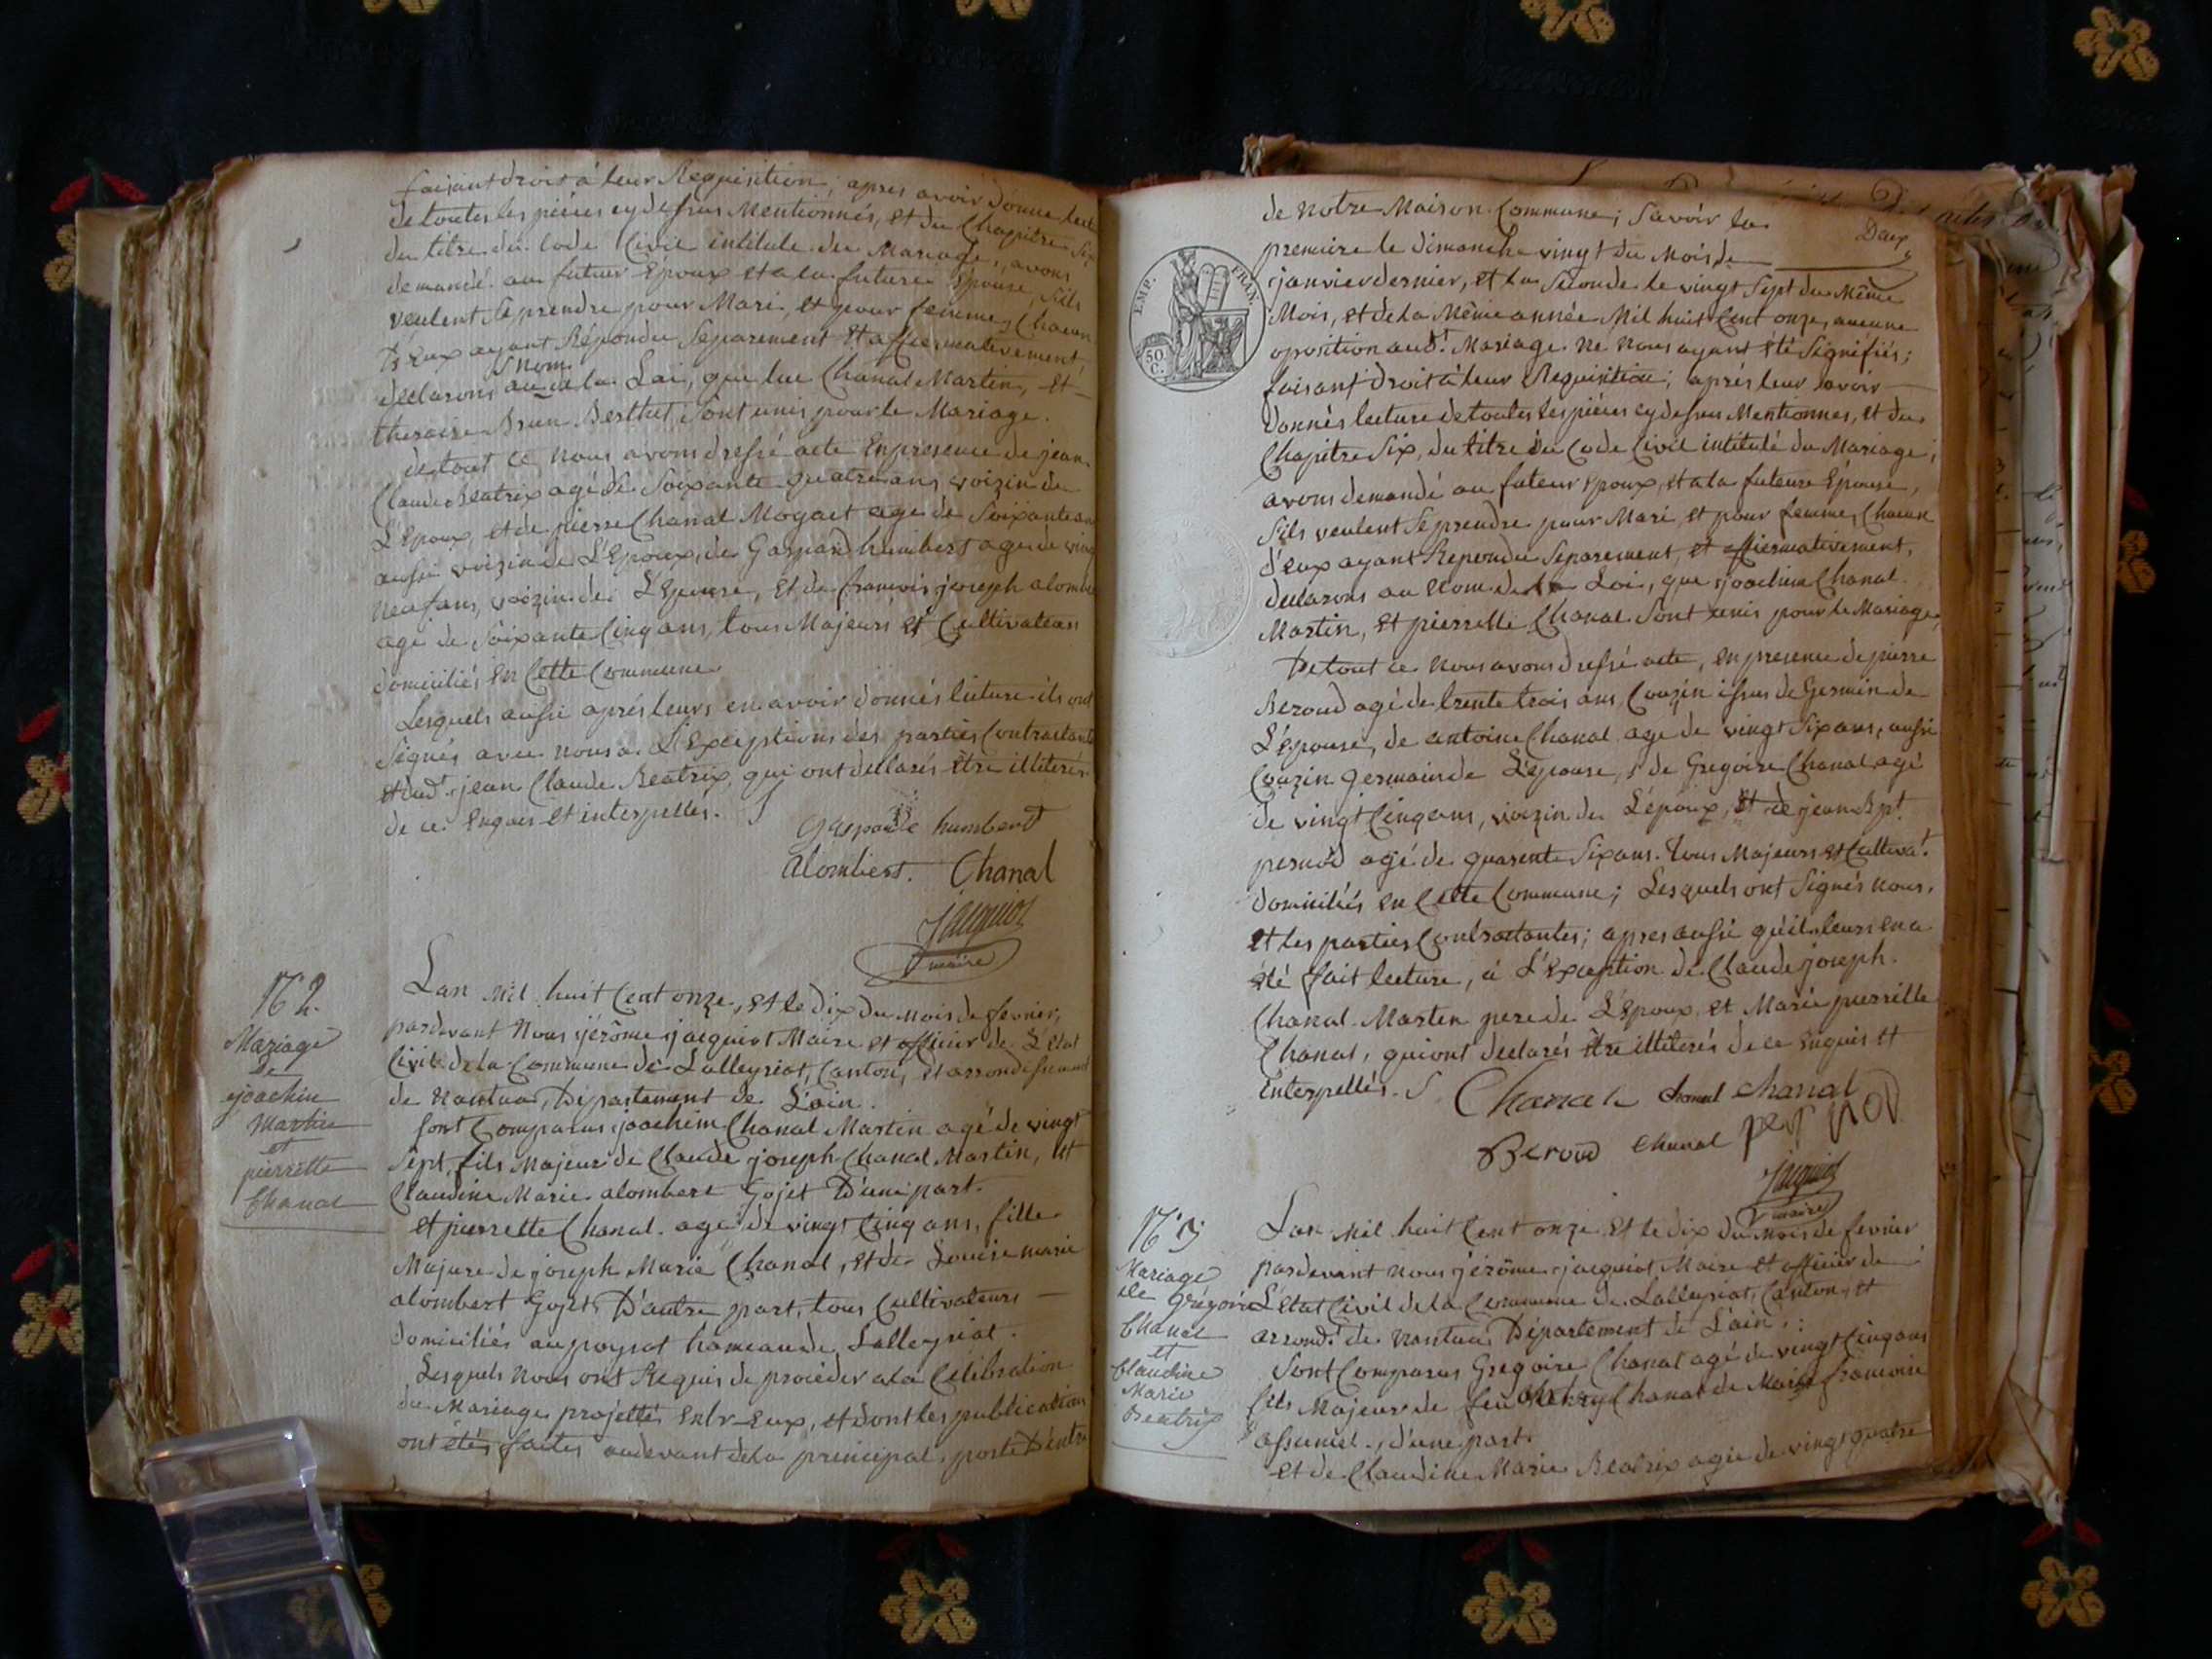 faisant droit à leur Requisition, apres avoir donné lect
de toutes les pieces cy dessus Mentionnés, et du Chapitre Six
du titre du Code Civil intitulé du Mariage, avons
demandé au futeur Epoux et a la future Epouse, Sils
veulent Se prendre pour Mari, et pour femme, Chacun
D'Eux ayant Répondu Separement Et affirmativement,
nom
declarons au de la Loi, que luc Chanal Martin, et
theraise Brun Berthet Sont unis pour le Mariage.
de tout ce nous avons dressé acte En presence de jean
Claude Beatrix agé de Soixante quatre ans, voizin de
L'Epoux, et de pierre Chanal Mogaet age de Soixante an
aussi voizin de L'Epoux, de Gaspard humbert age de ving
neuf ans, voizin de L'Epouse, Et de francois joseph alombe
age de Soixante Cinq ans, tous Majeurs et Cultivateurs
domiciliés en Cette Commune
Lesquels aussi après leurs en avoir donnés lecture ils ont
Signés avec nous a L'Exceptions des parties Contractante
et dud.t jean Claude Beatrix, qui ont dellarés Etre illiterés
de ce Enquis et interpelles.
Gaspade humbert
alombert. Chanal
Jacquiot
maire
N.° 2.
Mariage
de
joachin
Martin
et
pierrette
Chanal
Lan Mil huit Cent onze, et le dix du mois de fevrier,
pardevant Nous jérôme jacquiot Maire et officier de L'Etat
Civil de la Commune de Lalleyriat, Canton, et arrondissement
de Nantua, Departement de L'ain.
Sont Comparus joachim Chanal Martin agé de vingt
Sept, fils Majeur de Claude joseph Chanal Martin, et
Claudine Marie alombert Gojet D'une part.
et pierrette Chanal age de vingt Cinq ans, fille
Majure de joseph Marie Chanal, et de Louise marie
alombert Gojet, D'autre part, tous Cultivateurs
domiciliés au poyset hameau de Lalleyriat.
Lesquels Nous ont Requis de procéder a la Célébration
du Mariage projettés Entr-Eux, et dont les publications
ont étés faites audevant de la principal porte D'entré
Deux
EMP. FRAN.
50 C.
de notre Maison Commune; Savoir la
premiere le dimanche vingt du Mois de
janvier dernier, et la Seconde le vingt Sept du Même
Mois, et de la Même année Mil huit Cent onze, aucune
oposition aud.t Mariage Ne Nous ayant été Signifiés;
faisant droit à leur Requisition; aprés leur avoir
donnés lecture de toutes les piéces cy dessus Mentionnes, et du
Chapitre Six, du titre du Code Civil intitulé du Mariage;
avons demandé au futeur Epoux, et a la future Epouse,
Sils veulent Se prendre pour Mari et pour femme, Chacun
d'eux ayant Repondu Separement, et affirmativement,
declarons au Nom de la Loi, que joachim Chanal
Martin, et pierrette Chanal Sont unis pour le Mariage,
De tout ce nous avons dressé acte, en presence de pierre
Beroud agé de trente trois ans Couzin issus de Germin de
L'Epouse, de antoine Chanal age de vingt Six ans, aussi
Couzin germain de L'epouse, de Gregoire Chanal agé
de vingt Cinq ans, voizin de L'époux, et de jean Bpt.
pernod agé de quarente Six ans. Tous Majeurs et Cultiva.t
domiciliés en Cette Commune; Lesquels ont Signés nous,
et les parties Contractantes; apres aussi qu'il leurs en a
été fait lecture, à L'Exception de Claude joseph
Chanal Martin pere de L'Epoux et Marie pierrette
Chanal, qui ont declarés être illiterés de ce Enquis et
Enterpellés.
Chanal chanal chanal
Beroud chanal per nod
Jacquiot
maire
N.° 3
Mariage
de Grégoire
Chanal
et
Claudine
Marie
Beatrix
Lan Mil huit Cent onze et le dix du Mois de fevrier
pardevant nous jérôme jacquiot Maire et officier de
L'Etat Civil de la Commune de Lalleyriat, Canton, et
arrond.t de Nantua, Département de L'ain.
Sont Comparus Gregoire Chanal agé de vingt Cinq ans
fils Majeur de feu Chanal de Marie francoise
d'une part.
et de Claudine Marie Beatrix agée de vingt quatre